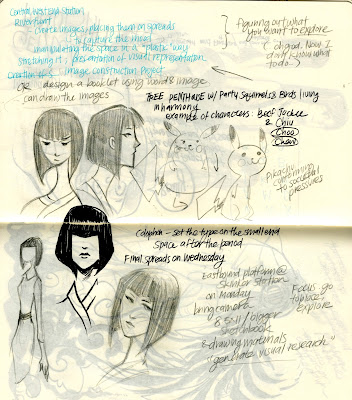 Central West End Station
Riverfront
choose images, placing them on spreads
to capture the mood
manipulating the space in a "plastic" way
stretching it, presentation of visual representation
Creation of image construction project
OR design a booklet using words & image
can draw the images
Figuring out what
you want to explore
(oh god. Now I
don't know what
to do)
TREE PENTHOUSE w/ Party Squirrels & Birds living
in harmony
example of characters: Beef Jackee
& Chiu
Choo
Chew
Pikachu
conforming
to societal
pressures
Colophon - set the type on the small end
space after the period
Final spreads on Wednesday
Eastbound platform @
Skinker Station
on Monday
bring camera
8.5 x 11 / bigger
sketchbook
& drawing materials
"generate visual research"
Focus go
explore